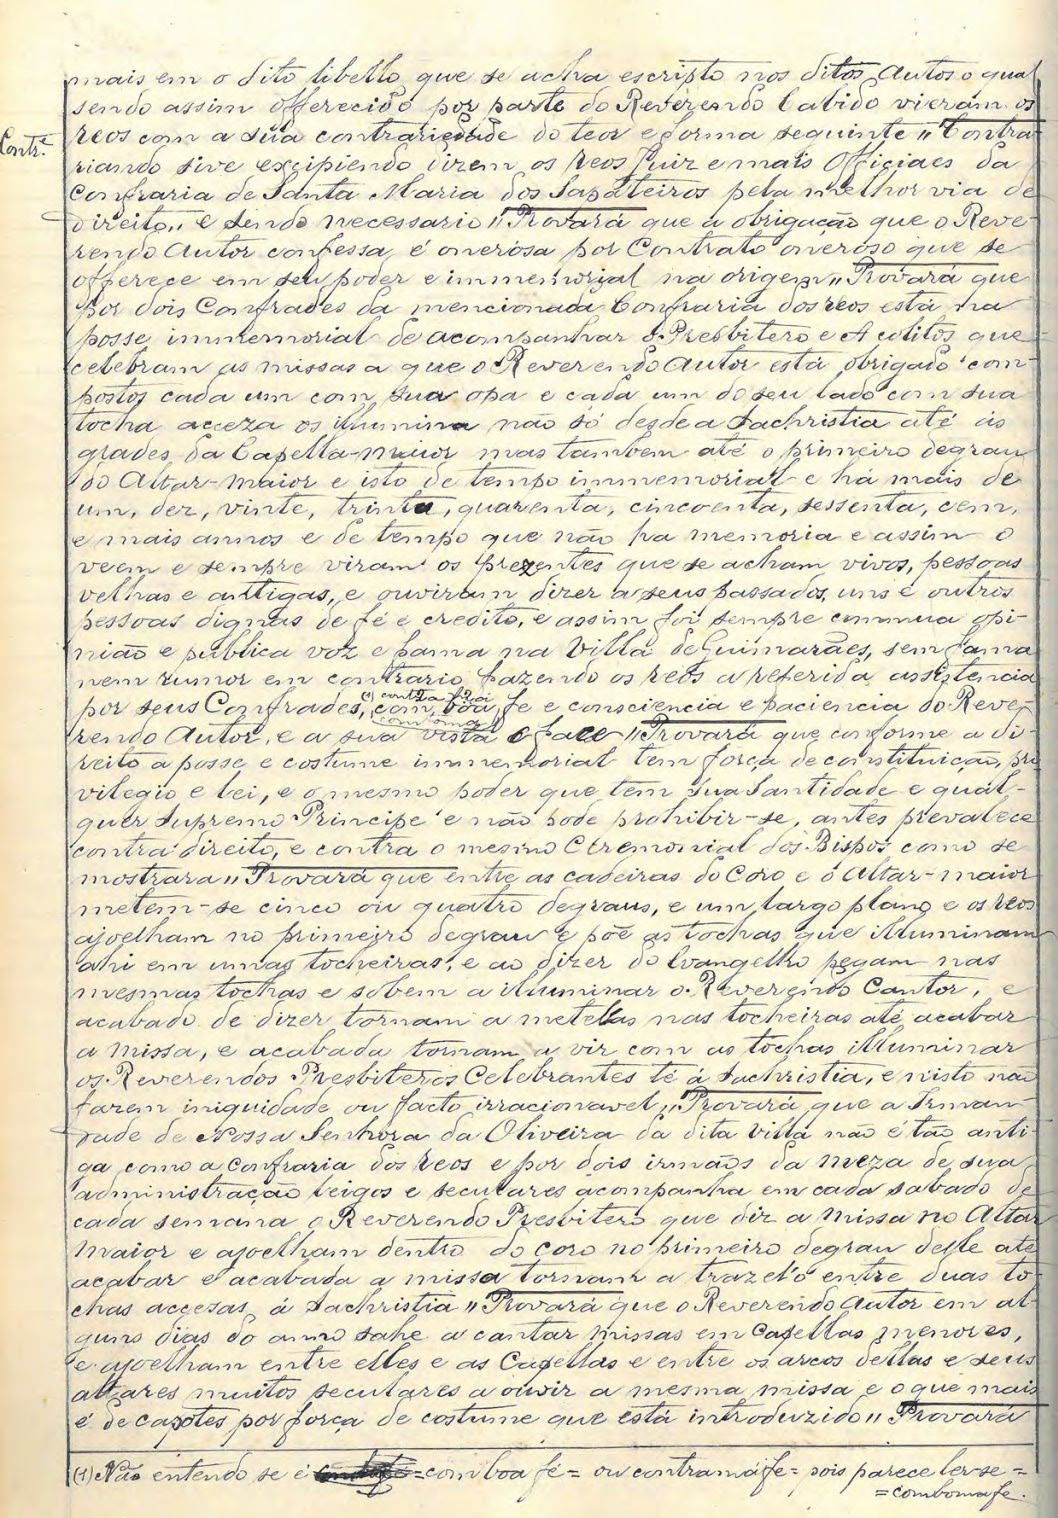 mais em o dito libello, que se acha escripto nos ditos Autos o qual
sendo assim offerecido por parte do Reverendo Cabido vieram os
Contr.e
reos com a sua contrariedade do teor e forma seguinte „ Contra-
riando sive excipiendo dizem os reos Juiz e mais Officiaes da
Confraria de Santa Maria dos Sapateiros pela melhor via de
direito, e sendo necessario „ Provará que a obrigação que o Reve-
rendo Autor confessa, é onerosa por Contrato oneroso que se
offerece em seu poder e immemorial na origem „ Provará que
por dois Confrades da mencionada Confraria dos reos está na
posse immemorial de acompanhar o Presbitero e Acolitos que
celebram as missas a que o Reverendo Autor está obrigado com-
postos cada um com sua opa e cada um do seu lado com sua
tocha acceza os illumina não só desde a Sachristia até ás
grades da Capella-maior mas tambem até o primeiro degrau
do Altar-maior e isto de tempo immemorial e há mais de
um, dez, vinte, trinta, quarenta, cincoenta, sessenta, cem,
e mais annos e de tempo que não ha memoria e assim o
veem e sempre viram os prezentes que se acham vivos, pessoas
velhas e antigas, e ouviram dizer a seus passados, uns e outros
pessoas dignas de fé e credito, e assim foi sempre commua opi-
nião e publica voz e fama na Villa de Guimarães, sem fama
nem rumor em contrario, fazendo os reos a referida assistencia
(1) contra fé a
por seus Confrades, com boa fe e consciencia e paciencia do Reve-
com oma
rendo Autor, e a sua vista e face „ Provará que conforme a di-
reito a posse e costume immemorial tem força de constituição, pri
vilegio e lei, e o mesmo poder que tem Sua Santidade e qual-
quer Supremo Principe e não pode prohibir-se, antes prevalece
contra direito, e contra o mesmo Ceremonial dos Bispos como se
mostrara „ Provará que entre as cadeiras do Coro e o Altar-maior
metem-se cinco ou quatro degraus, e um largo plano e os reos
ajoelham no primeiro degrau e põe as tochas que illuminam
ahi em umas tocheiras, e ao dizer do Evangelho pegam nas
mesmas tochas e sobem a illuminar o Reverendo Cantor, e
acabado de dizer tornam a metelas nas tocheiras até acabar
a missa, e acabada tornam a vir com as tochas illuminar
os Reverendos Presbiteros Celebrantes té á Sachristia, e nisto não
fazem iniquidade ou facto irracionavel „ Provará que a Irman-
dade de Nossa Senhora da Oliveira da dita Villa não é tão anti-
ga como a Confraria dos reos e por dois irmãos da meza de sua
administração leigos e seculares acompanha em cada sabado de
cada semana o Reverendo Presbitero que diz a missa no Altar
maior e ajoelham dentro do coro no primeiro degrau delle até
acabar e acabada a missa tornam a trazel'o entre duas to-
chas accesas á Sachristia „ Provará que o Reverendo Autor em al-
guns dias do anno sahe a cantar missas em Capellas menores,
e ajoelham entre elles e as Capellas e entre os arcos dellas e seus
altares muitos seculares a ouvir a mesma missa e o que mais
é de capotes por força de costume que está introduzido „ Provará
(1) Não entendo se é =com boa fé= ou contra má fe= pois parece ler-se=
=combomafe.